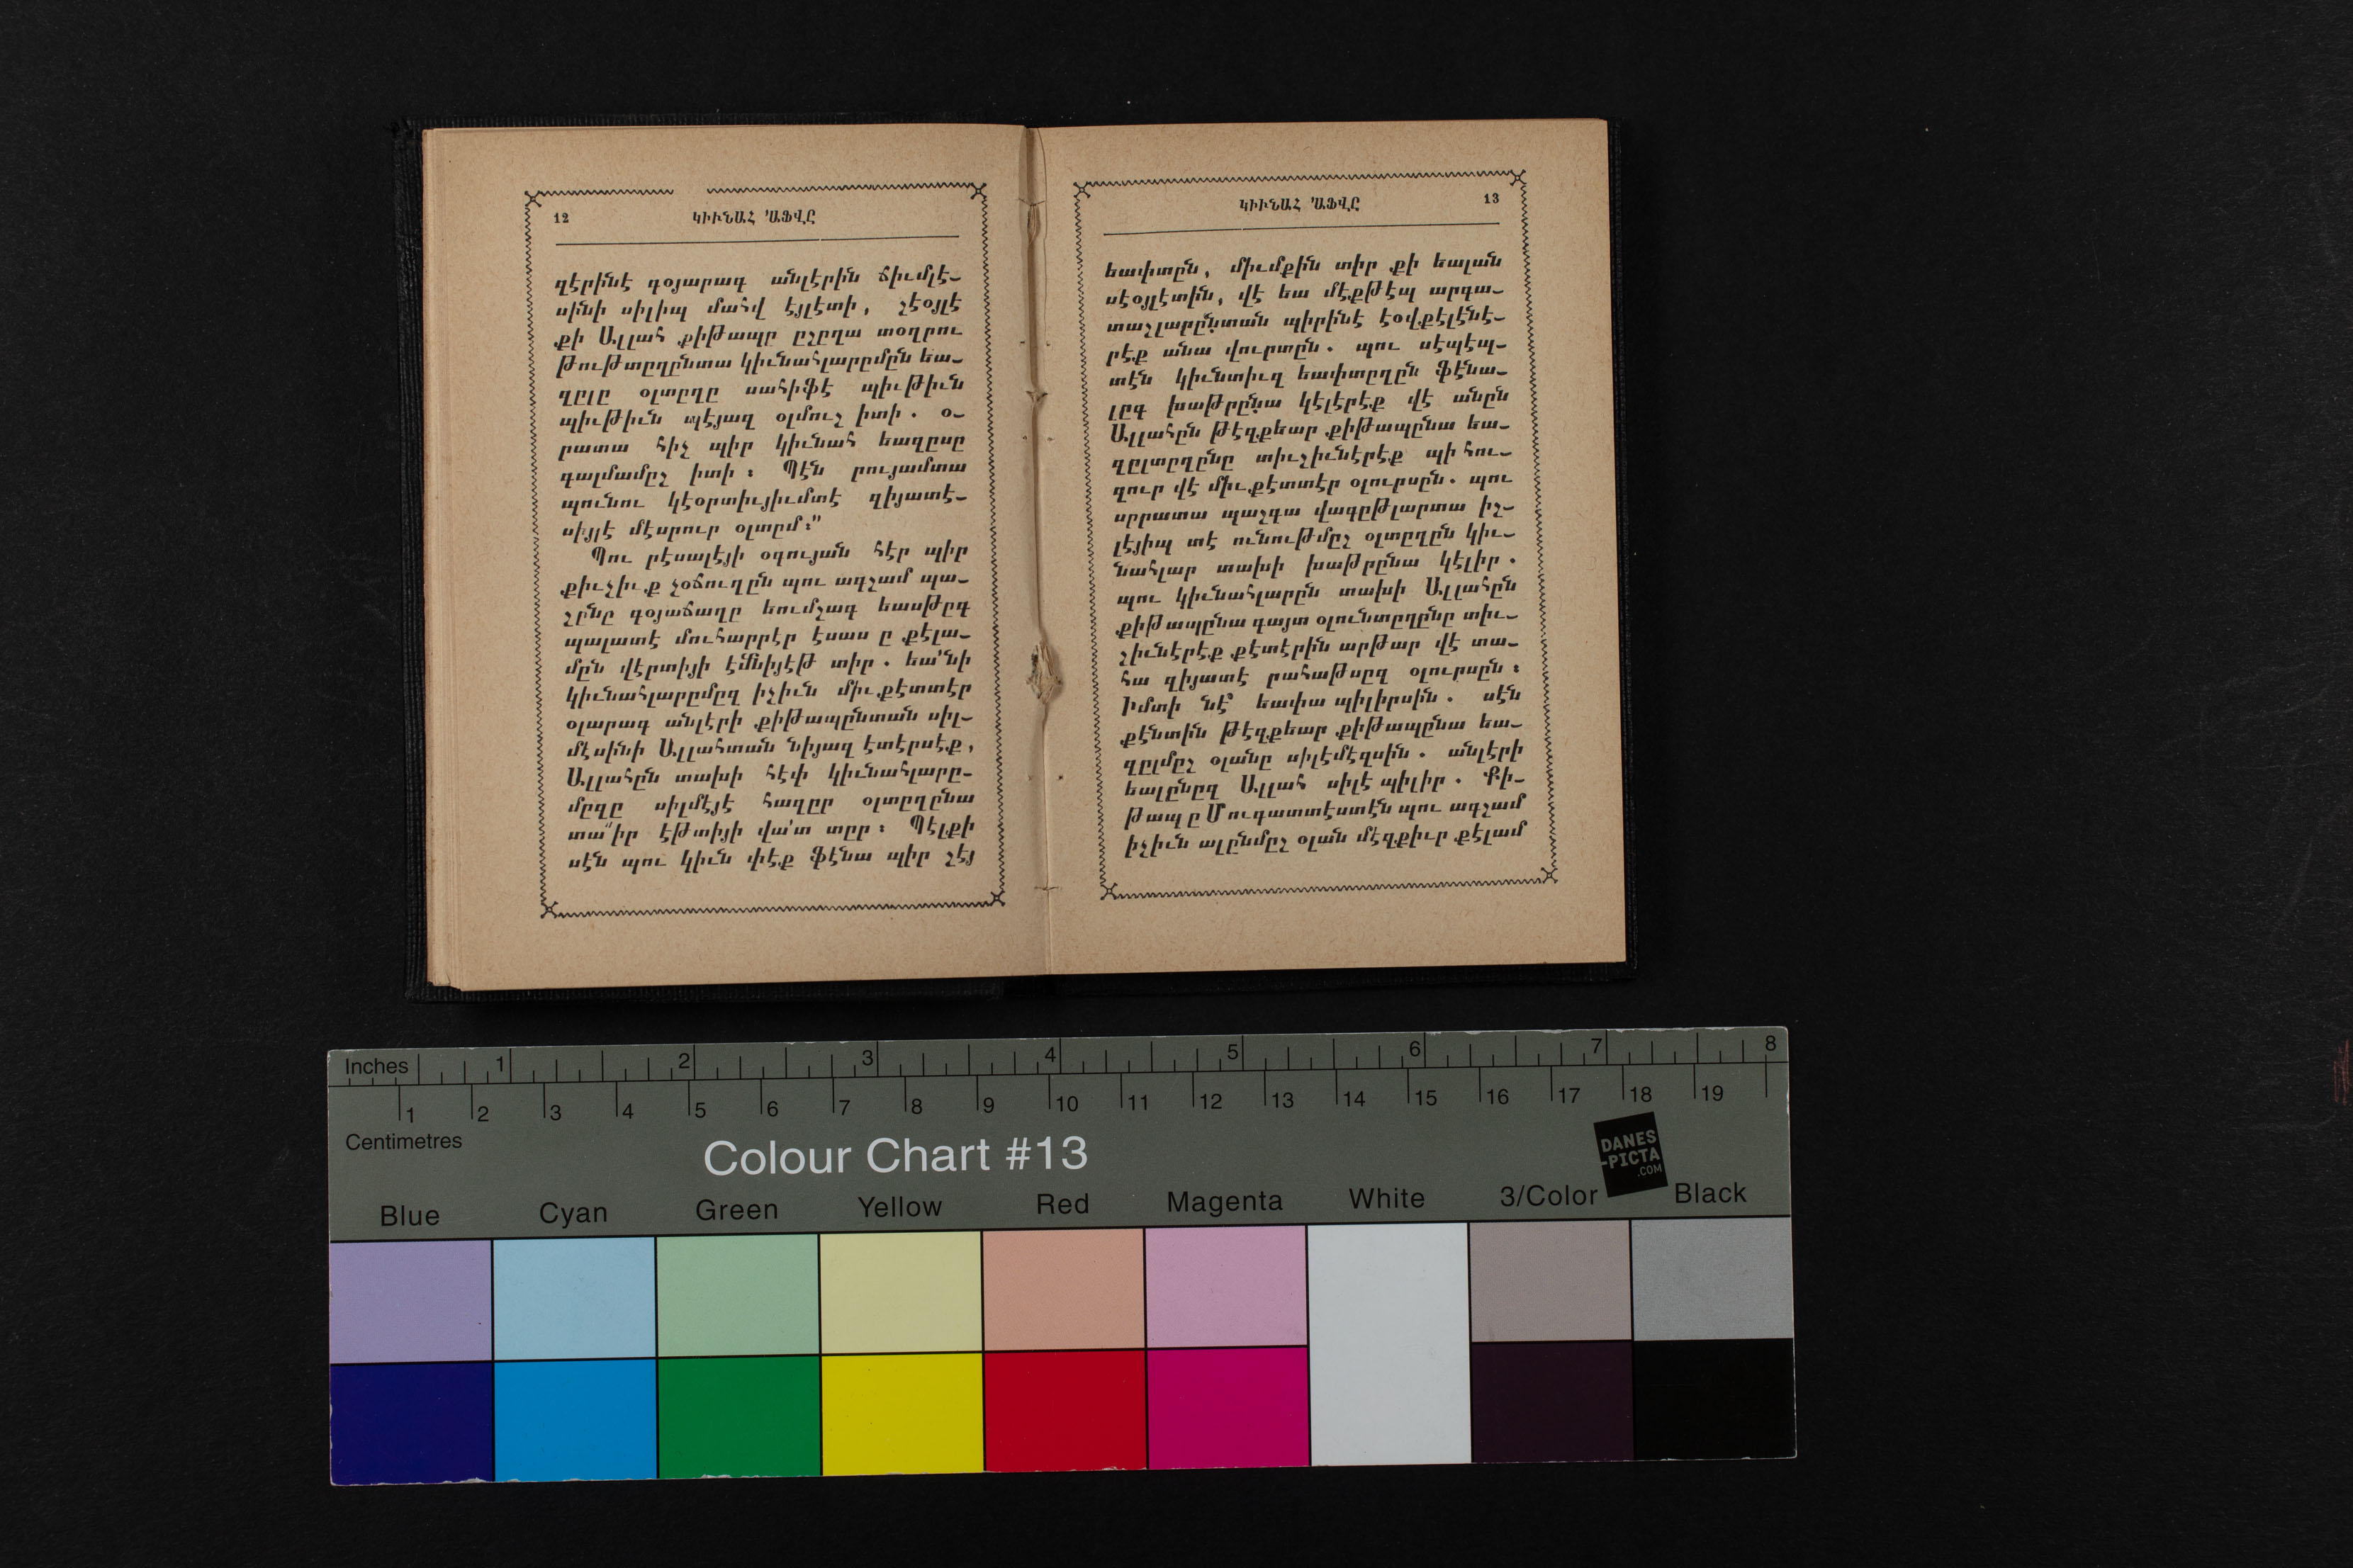 12 ԿԻՒՆԱՀ ՚ԱՖՎԸ
զէրինէ գօյարագ անլէրին ճիւմլէ-
սինի սիլիպ մահվ էյլէտի, շէօյլէ
քի Ալլահ քիթապը ըշըղա տօղրու
թութտըղընտա կիւնահլարըմըն եա-
զըլը օլտըղը սահիֆէ պիւթիւն
պիւթիւն պէյազ օլմուշ իտի. օ-
րատա հիչ պիր կիւնահ եազըսը
գալմամըշ իտի։ Պէն րույամտա
պունու կէօրտիւյիւմտէ զիյատէ-
սիյլէ մէսրուր օլտըմ։"
Պու րէսալէյի օգույան հէր պիր
քիւչիւք չօճուղըն պու ագշամ պա-
շընը գօյաճաղը եումշագ եասթըգ
պալատէ մուհարրէր էսաս ը քէլա-
մըն վէրտիյի էմնիյէթ տիր. եա՚նի
կիւնահլարըմըզ իչիւն միւքէտտէր
օլարագ անլէրի քիթապընտան սիլ-
մէսինի Ալլահտան նիյազ էտէրսէք,
Ալլահըն տախի հէփ կիւնահլարը-
մըզը սիլմէյէ հազըր օլտըղընա
տա՚՚իր էթտիյի վա՚տ տըր։ Պէլքի
սէն պու կիւն փէք ֆէնա պիր շէյ
ԿԻՒՆԱՀ ՚ԱՖՎԸ 13
եափտըն, միւմքին տիր քի եալան
սէօյլէտին, վէ եա մէքթէպ արգա-
տաշլարընտան պիրինէ էօվքէլէնէ-
րէք անա վուրտըն. պու սէպէպ-
տէն կիւնտիւզ եափտըղըն ֆէնա-
լըգ խաթըրընա կէլէրէք վէ անըն
Ալլահըն թէզքեար քիթապընա եա-
զըլտըղընը տիւշիւնէրէք պի հու-
զուր վէ միւքէտտէր օլուրսըն. պու
սըրատա պաշգա վագըթլարտա իշ-
լէյիպ տէ ունութմըշ օլտըղըն կիւ-
նահլար տախի խաթըրընա կէլիր.
պու կիւնահլարըն տախի Ալլահըն
քիթապընա գայտ օլունտըղընը տիւ-
շիւնէրէք քէտէրին արթար վէ տա-
հա զիյատէ րահաթսըզ օլուրսըն։
Իմտի նէ՞ եափա պիլիրսին. սէն
քէնտին թէզքեար քիթապընա եա-
զըլմըշ օլանը սիլէմէզսին. անլէրի
եալընըզ Ալլահ սիլէ պիլիր. Քի-
թապ ը Մուգատտէստէն պու ագշամ
իչիւն ալընմըշ օլան մէզքիւր քէլամ
Inches 1 2 3 4 5 6 7 8
1 2 3 4 5 6 7 8 9 10 11 12 13 14 15 16 17 18 19
Centimetres
Colour Chart #13
DANES
-PICTA
.COM
Blue Cyan Green Yellow Red Magenta White 3/Color Black